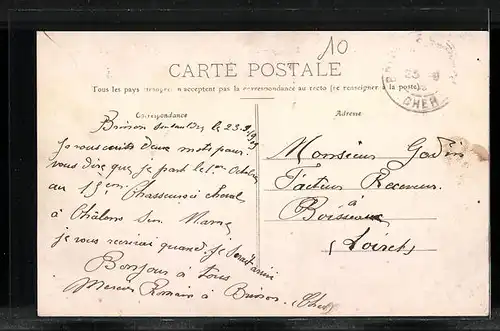 10
CARTE POSTALE
Tous les pays étrangers n'acceptent pas la correspondance au recto (se renseigner à la poste)
Correspondance
Adresse
23 -9
CHER
le 23-9
je vous écrits deux mots pour
vous dire que je part le 1er Octobre
au 15em Chasseurs à cheval
à Châlons Sur Marne
je vous écrirai quand je serai
Bonjour à tous
Romain à Brinon (Cher)
Monsieur
Facteur Receveur
à
Boisseaux
(Loiret)